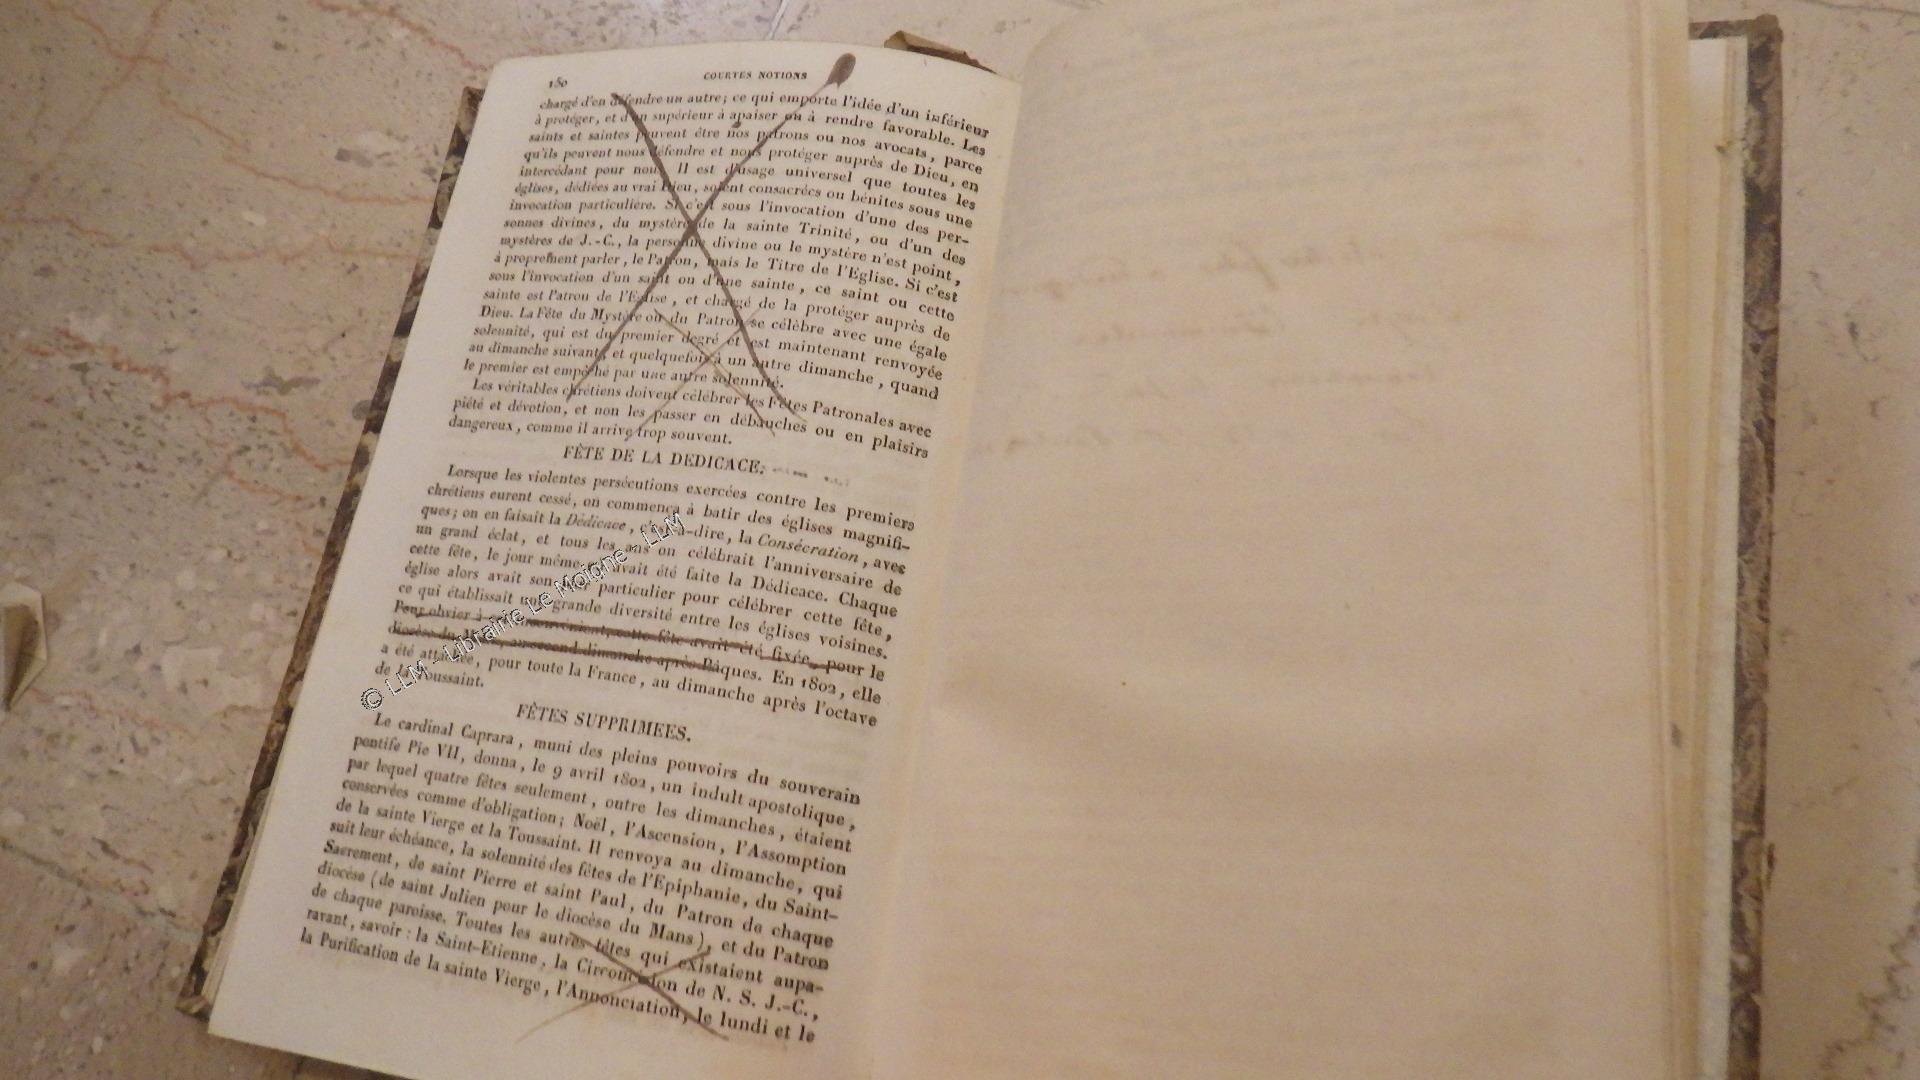 150 COURTES NOTIONS
chargé d'en défendre un autre; ce qui emporte l'idée d'un inférieur
à protéger, et d'un supérieur à apaiser ou à rendre favorable. Les
saints et saintes peuvent être nos patrons ou nos avocats, parce
qu'ils peuvent nous défendre et nous protéger auprès de Dieu, en
intercédant pour nous. Il est d'usage universel que toutes les
églises, dédiées au vrai Dieu, soient consacrées ou bénites sous une
invocation particulière. Si c'est sous l'invocation d'une des per-
sonnes divines, du mystère de la sainte Trinité, ou d'un des
mystères de J.-C., la personne divine ou le mystère n'est point,
à proprement parler, le Patron, mais le Titre de l'Eglise. Si c'est
sous l'invocation d'un saint ou d'une sainte, ce saint ou cette
sainte est Patron de l'Eglise, et chargé de la protéger auprès de
Dieu. La Fête du Mystère ou du Patron se célèbre avec une égale
solennité, qui est du premier degré et est maintenant renvoyée
au dimanche suivant, et quelquefois à un autre dimanche, quand
le premier est empêché par une autre solennité.
Les véritables chrétiens doivent célébrer les Fêtes Patronales avec
piété et dévotion, et non les passer en débauches ou en plaisirs
dangereux, comme il arrive trop souvent.
FÊTE DE LA DEDICACE.
Lorsque les violentes persécutions exercées contre les premiers
chrétiens eurent cessé, on commença à batir des églises magnifi-
ques; on en faisait la Dédicace, c'est-à-dire, la Consécration, avec
un grand éclat, et tous les ans on célébrait l'anniversaire de
cette fête, le jour même avait été faite la Dédicace. Chaque
église alors avait son particulier pour célébrer cette fête,
ce qui établissait une grande diversité entre les églises voisines.
Pour obvier à cet inconvénient, cette fête avait été fixée, pour le
diocèse du Mans, au second dimanche après Pâques. En 1802, elle
a été attachée, pour toute la France, au dimanche après l'octave
de la Toussaint.
FÊTES SUPPRIMEES.
Le cardinal Caprara, muni des pleins pouvoirs du souverain
pontife Pie VII, donna, le 9 avril 1802, un indult apostolique,
par lequel quatre fêtes seulement, outre les dimanches, étaient
conservées comme d'obligation; Noël, l'Ascension, l'Assomption
de la sainte Vierge et la Toussaint. Il renvoya au dimanche, qui
suit leur échéance, la solennité des fêtes de l'Epiphanie, du Saint-
Sacrement, de saint Pierre et saint Paul, du Patron de chaque
diocèse (de saint Julien pour le diocèse du Mans), et du Patron
de chaque paroisse. Toutes les autres fêtes qui existaient aupa-
ravant, savoir: la Saint-Etienne, la Circoncision de N. S. J.-C.,
la Purification de la sainte Vierge, l'Annonciation, le lundi et le
© LLM - Librairie Le Moigne - LLM